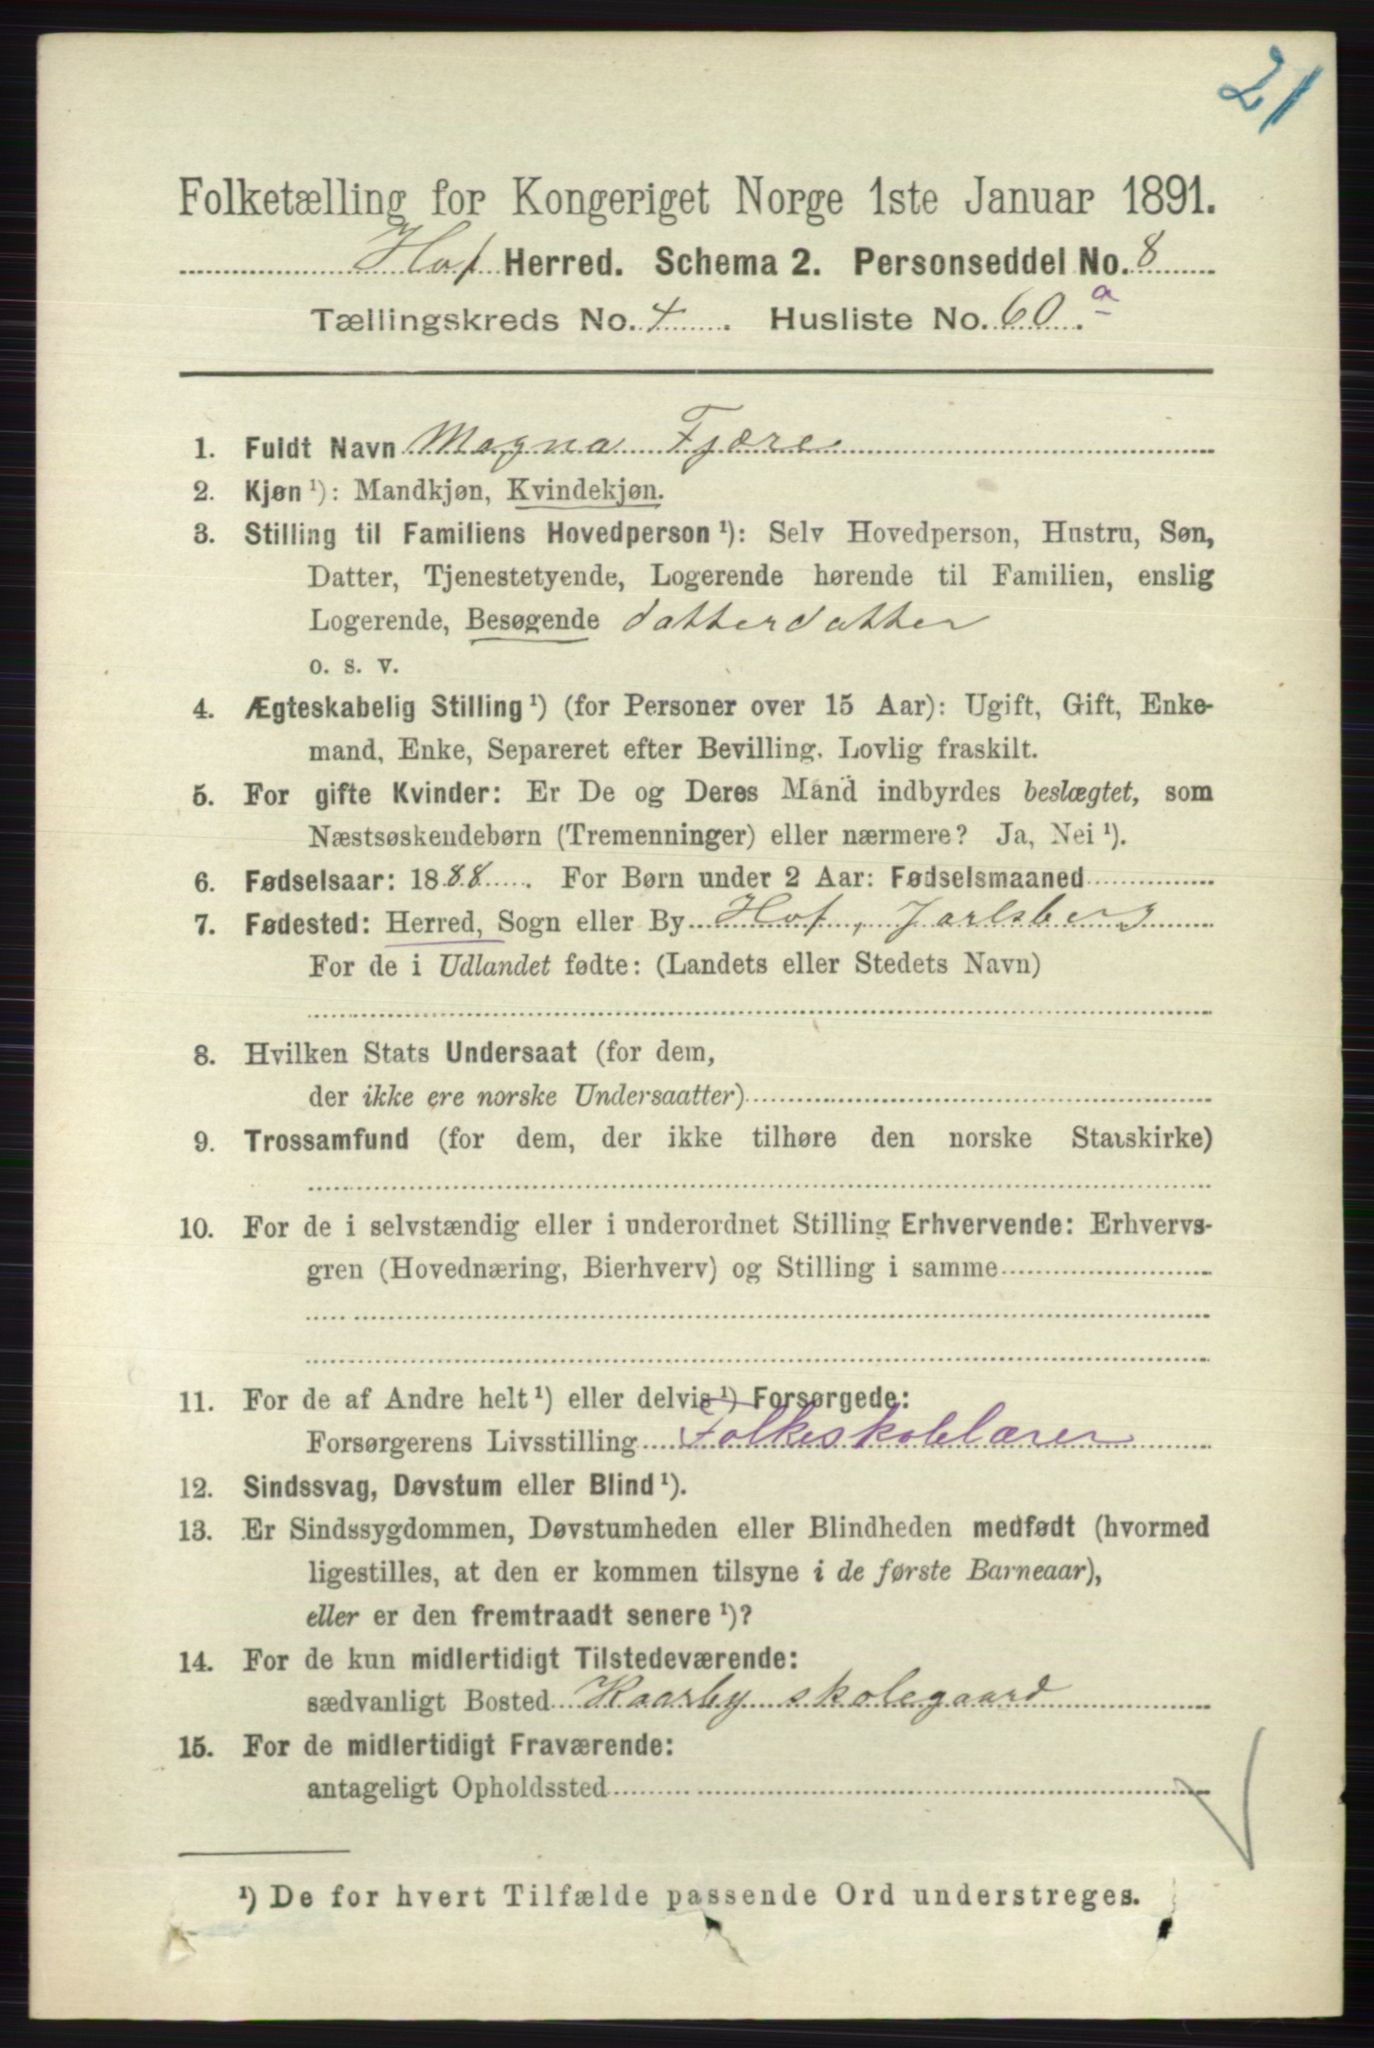 21
Folketælling for Kongeriget Norge 1ste Januar 1891.
Hof Herred. Schema 2. Personseddel No. 8
Tællingskreds No. 4. Husliste No. 60. a
1. Fuldt Navn Magna Fjære
2. Kjøn ¹): Mandkjøn, Kvindekjøn.
3. Stilling til Familiens Hovedperson ¹): Selv Hovedperson, Hustru, Søn,
Datter, Tjenestetyende, Logerende hørende til Familien, enslig
Logerende, Besøgende datterdatter
o. s. v.
4. Ægteskabelig Stilling ¹) (for Personer over 15 Aar): Ugift, Gift, Enke-
mand, Enke, Separeret efter Bevilling. Lovlig fraskilt.
5. For gifte Kvinder: Er De og Deres Mand indbyrdes beslægtet, som
Næstsøskendebørn (Tremenninger) eller nærmere? Ja, Nei ¹).
6. Fødselsaar: 1888. For Børn under 2 Aar: Fødselsmaaned
7. Fødested: Herred, Sogn eller By Hof, Jarlsberg
For de i Udlandet fødte: (Landets eller Stedets Navn)
8. Hvilken Stats Undersaat (for dem,
der ikke ere norske Undersaatter)
9. Trossamfund (for dem, der ikke tilhøre den norske Statskirke)
10. For de i selvstændig eller i underordnet Stilling Erhvervende: Erhvervs-
gren (Hovednæring, Bierhverv) og Stilling i samme
11. For de af Andre helt ¹) eller delvis ¹) Forsørgede:
Forsørgerens Livsstilling Folkeskolelærer
12. Sindssvag, Døvstum eller Blind ¹).
13. Er Sindssygdommen, Døvstumheden eller Blindheden medfødt (hvormed
ligestilles, at den er kommen tilsyne i de første Barneaar),
eller er den fremtraadt senere ¹)?
14. For de kun midlertidigt Tilstedeværende:
sædvanligt Bosted Kaarby skolegaard
15. For de midlertidigt Fraværende:
antageligt Opholdssted
¹) De for hvert Tilfælde passende Ord understreges.